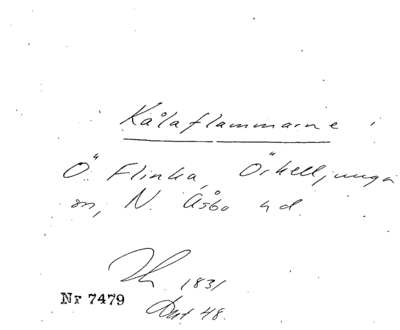 Kålaflammarne i
Ö Flinka, Örkelljunga
sn, N. Åsbo hd.
1831
Nr 7479
48.